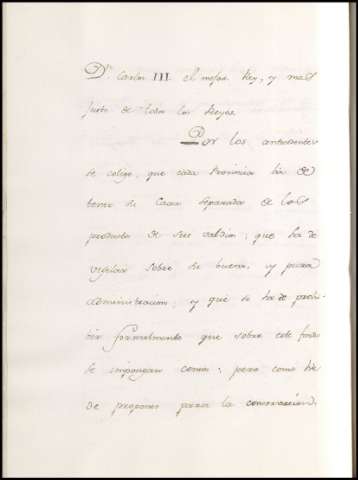 Dn. Carlos III el mejor Rey, y mas
justo de todos los Reyes.
Por los antecedentes
se colige, que cada Provincia ha de
tener su Caxa separada de los
productos de sus valdios; que ha de
vigilar sobre su buena, y pura
administracion; y que se ha de prohi-
bir formalmente que sobre este fondo
se impongan censos: pero como he
de proponer para la conservacion,